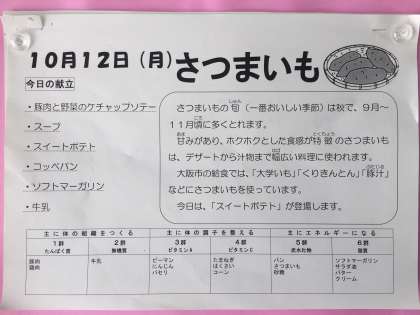 10月12日(月)さつまいも
今日の献立
・豚肉と野菜のケチャップソテー
・スープ
・スイートポテト
・コッペパン
・ソフトマーガリン
・牛乳
さつまいもの旬(一番おいしい季節)は秋で、9月~
11月頃に多くとれます。
甘みがあり、ホクホクとした食感が特徴のさつまいも
は、デザートから汁物まで幅広い料理に使われます。
大阪市の給食では、「大学いも」「くりきんとん」「豚汁」
などにさつまいもを使っています。
今日は、「スイートポテト」が登場します。
主に体の組織をつくる 主に体の調子を整える 主にエネルギーになる
1群 2群 3群 4群 5群 6群
たんぱく質 無機質 ビタミンA ビタミンC 炭水化物 脂質
豚肉 牛乳 ピーマン たまねぎ パン ソフトマーガリン
鶏肉 にんじん はくさい さつまいも サラダ油
パセリ コーン 砂糖 バター
クリーム